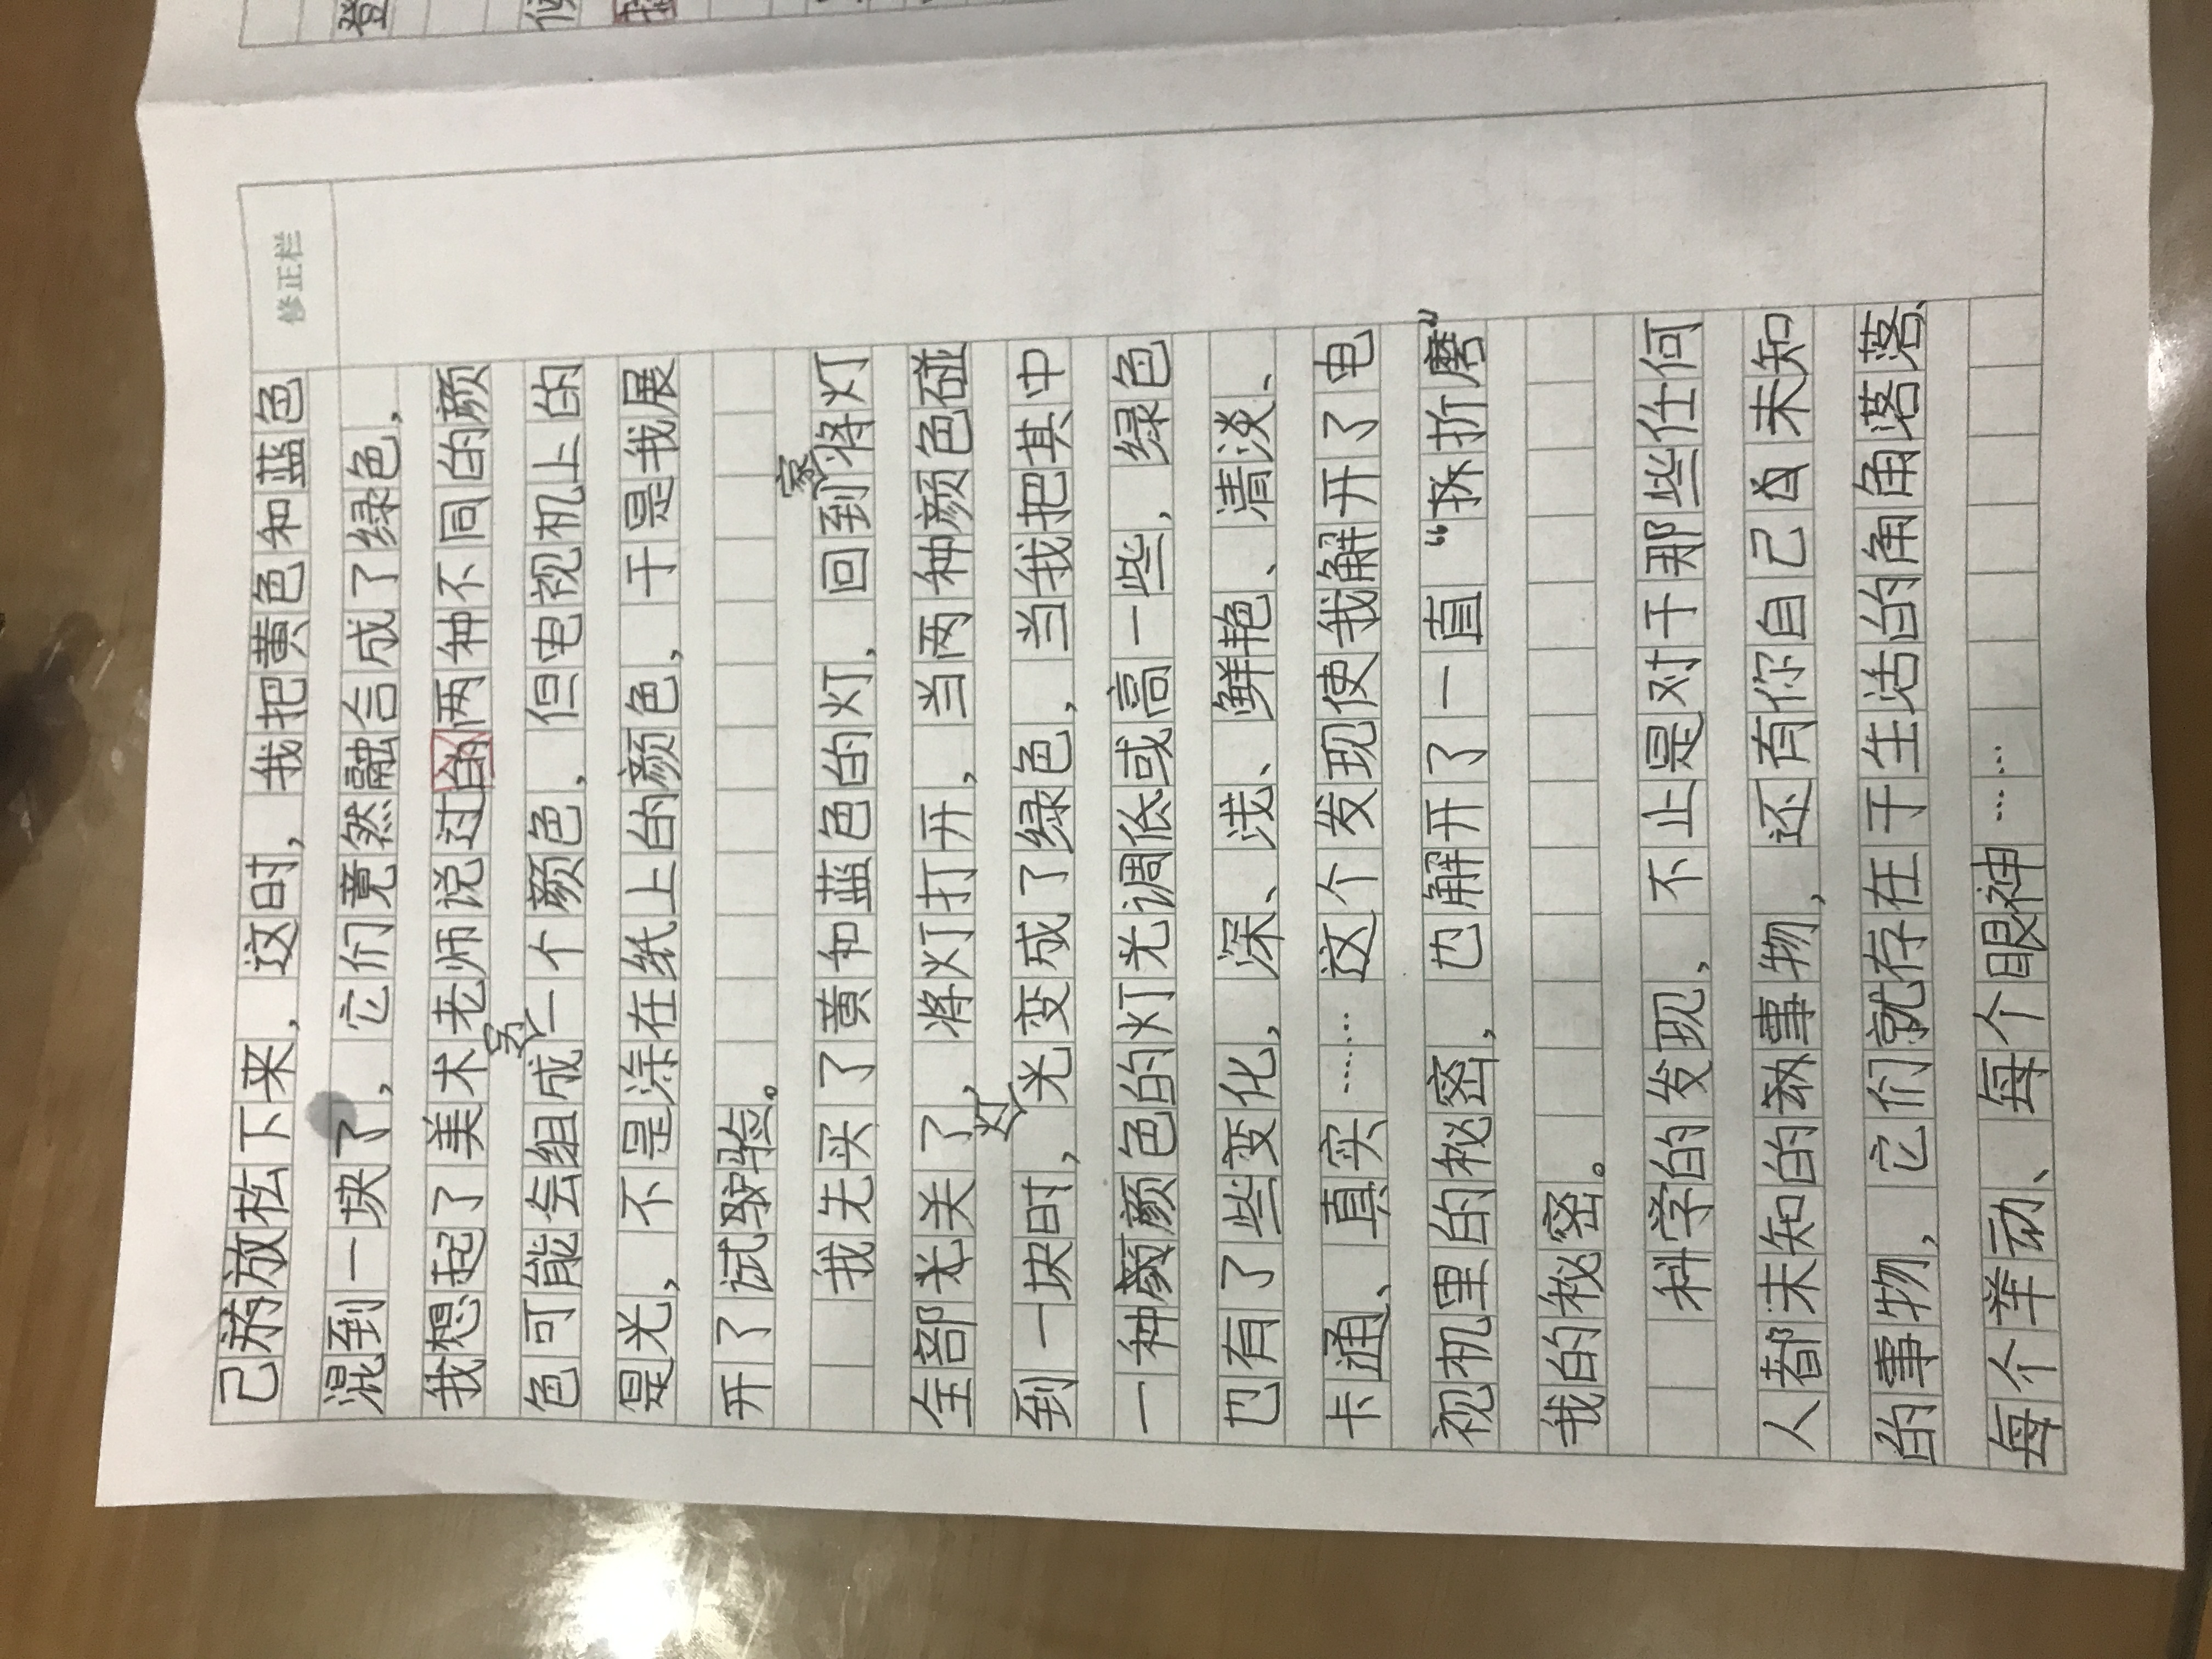 修正栏
己放松下来，这时，我把黄色和蓝色
混到一块了，它们竟然融合成了绿色，
我想起了美术老师说过的两种不同的颜
色可能会组成另一个颜色，但电视机上的
是光，不是涂在纸上的颜色，于是我展
开了试验。
我先买了黄和蓝色的灯，回到家将灯
全部关了，将灯打开，当两种颜色碰
到一块时，灯光变成了绿色，当我把其中
一种颜色的灯光调低或高一些，绿色
也有了些变化，深、浅、鲜艳、清淡、
卡通、真实……这个发现使我解开了电
视机里的秘密，也解开了一直“拆折磨”
我的秘密。
科学的发现，不止是对于那些任何
人都未知的事物，还有你自己未知
的事物，它们就存在于生活的角角落落、
每个举动、每个眼神……